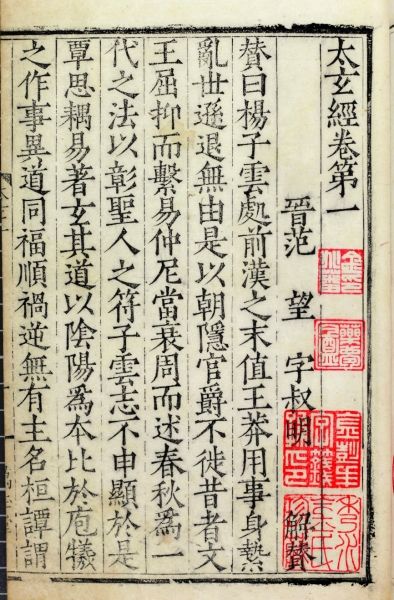 太玄經卷第一
晉范望字叔明解賛
賛曰楊子雲處前漢之末值王莽用事身縶
亂世遜退無由是以朝隱官爵不徙昔者文
王屈抑而繫易仲尼當衰周而述春秋為一
代之法以彰聖人之符子雲志不申顯於是
覃思耦易著玄其道以陰陽爲本比於庖犧
之作事異道同福順禍逆無有主名桓譚謂